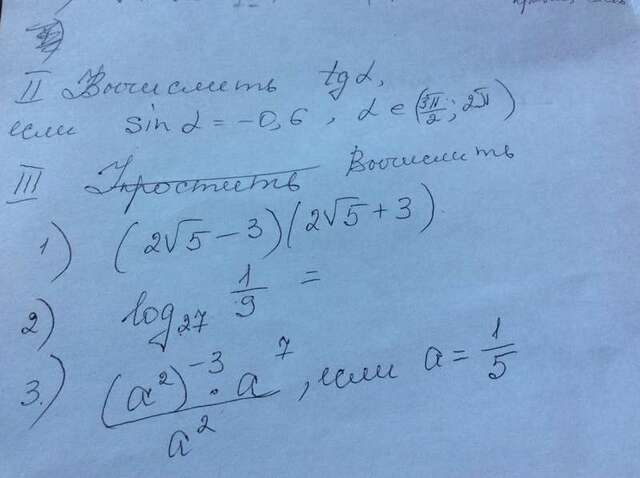 II Вычислить tg α,
если sin α = -0,6, α ∈ (3π/2; 2π)
III Упростить Вычислить
1) (2√5 - 3)(2√5 + 3)
2) log₂₇ 1/9 =
3.) (a²)⁻³ · a⁷ / a², если a = 1/5